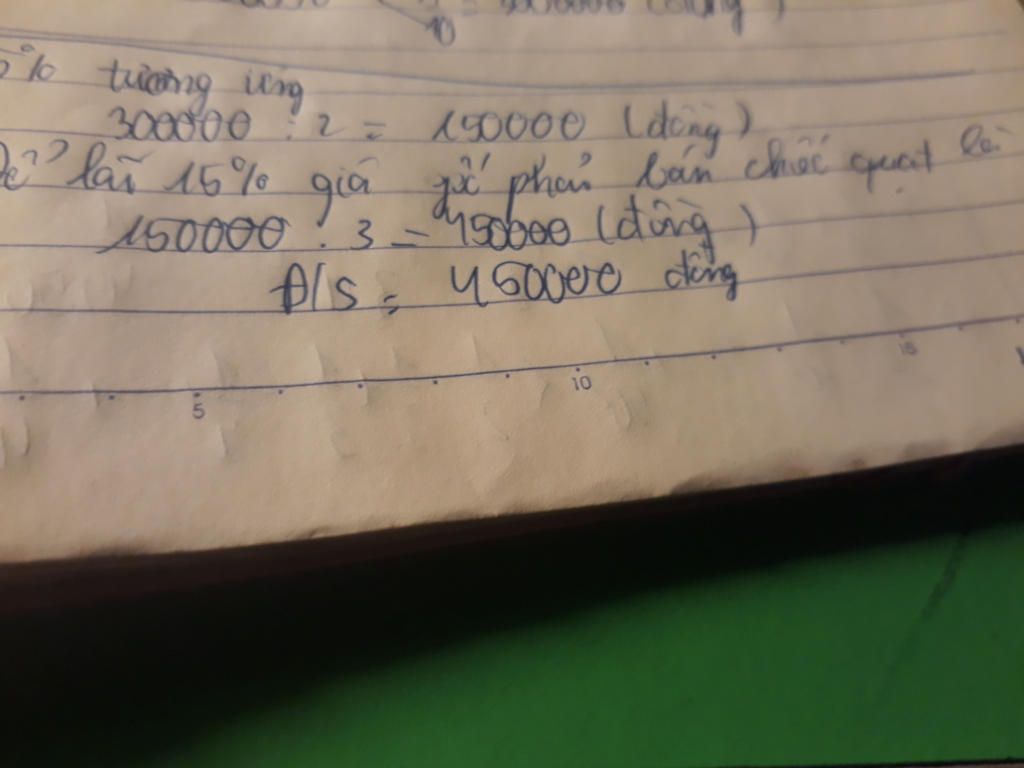 10
% tương ứng
300000 : 2 = 150000 (đồng)
Để lãi 15% giá gố phải bán chiếc quạt là
150000 . 3 = 450000 (đồng)
Đ/S = 450000 đồng
5 10 15